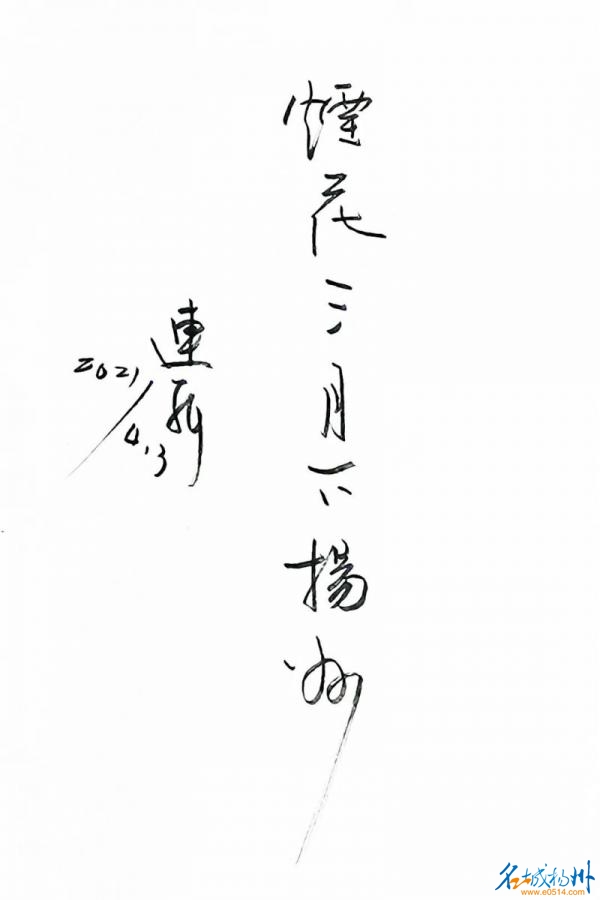 煙花三月下揚州
連新
2021/4.3
名城扬州
www.e0514.com